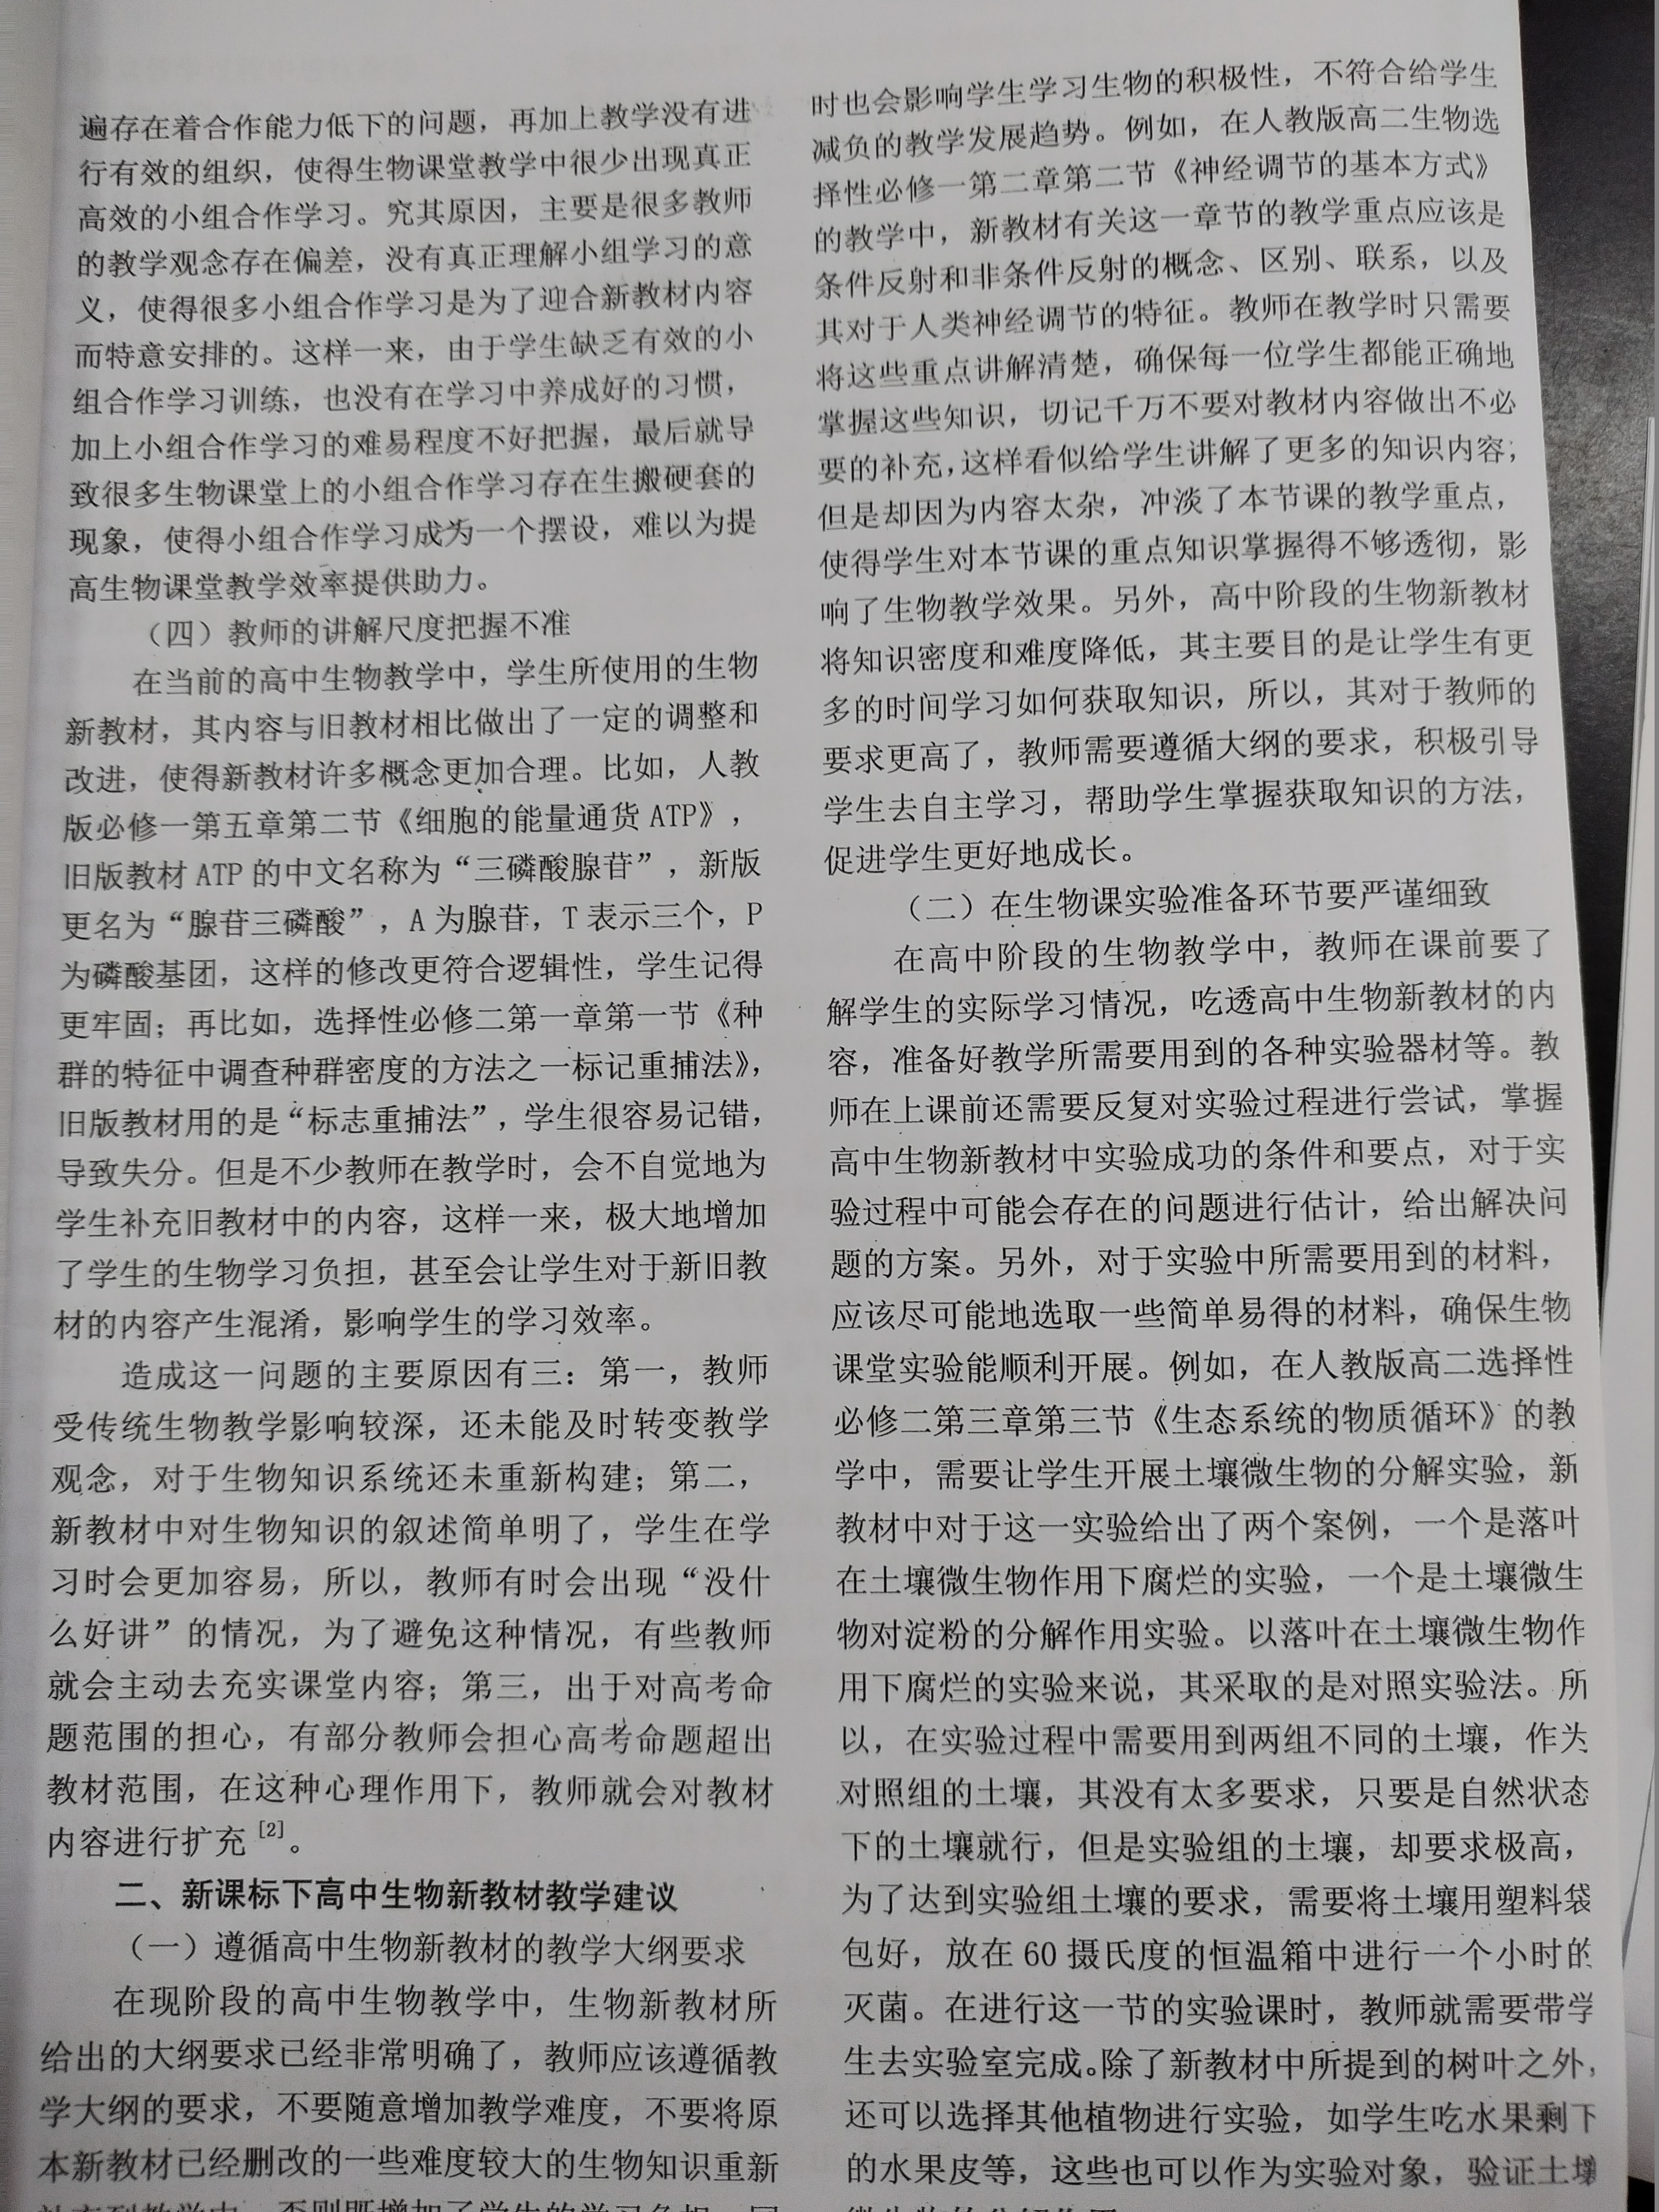 遍存在着合作能力低下的问题，再加上教学没有进
行有效的组织，使得生物课堂教学中很少出现真正
高效的小组合作学习。究其原因，主要是很多教师
的教学观念存在偏差，没有真正理解小组学习的意
义，使得很多小组合作学习是为了迎合新教材内容
而特意安排的。这样一来，由于学生缺乏有效的小
组合作学习训练，也没有在学习中养成好的习惯，
加上小组合作学习的难易程度不好把握，最后就导
致很多生物课堂上的小组合作学习存在生搬硬套的
现象，使得小组合作学习成为一个摆设，难以为提
高生物课堂教学效率提供助力。
（四）教师的讲解尺度把握不准
在当前的高中生物教学中，学生所使用的生物
新教材，其内容与旧教材相比做出了一定的调整和
改进，使得新教材许多概念更加合理。比如，人教
版必修一第五章第二节《细胞的能量通货 ATP》，
旧版教材 ATP 的中文名称为“三磷酸腺苷”，新版
更名为“腺苷三磷酸”，A 为腺苷，T 表示三个，P
为磷酸基团，这样的修改更符合逻辑性，学生记得
更牢固；再比如，选择性必修二第一章第一节《种
群的特征中调查种群密度的方法之一标记重捕法》，
旧版教材用的是“标志重捕法”，学生很容易记错，
导致失分。但是不少教师在教学时，会不自觉地为
学生补充旧教材中的内容，这样一来，极大地增加
了学生的生物学习负担，甚至会让学生对于新旧教
材的内容产生混淆，影响学生的学习效率。
造成这一问题的主要原因有三：第一，教师
受传统生物教学影响较深，还未能及时转变教学
观念，对于生物知识系统还未重新构建；第二，
新教材中对生物知识的叙述简单明了，学生在学
习时会更加容易，所以，教师有时会出现“没什
么好讲”的情况，为了避免这种情况，有些教师
就会主动去充实课堂内容；第三，出于对高考命
题范围的担心，有部分教师会担心高考命题超出
教材范围，在这种心理作用下，教师就会对教材
内容进行扩充[2]。
二、新课标下高中生物新教材教学建议
（一）遵循高中生物新教材的教学大纲要求
在现阶段的高中生物教学中，生物新教材所
给出的大纲要求已经非常明确了，教师应该遵循教
学大纲的要求，不要随意增加教学难度，不要将原
本新教材已经删改的一些难度较大的生物知识重新
时也会影响学生学习生物的积极性，不符合给学生
减负的教学发展趋势。例如，在人教版高二生物选
择性必修一第二章第二节《神经调节的基本方式》
的教学中，新教材有关这一章节的教学重点应该是
条件反射和非条件反射的概念、区别、联系，以及
其对于人类神经调节的特征。教师在教学时只需要
将这些重点讲解清楚，确保每一位学生都能正确地
掌握这些知识，切记千万不要对教材内容做出不必
要的补充，这样看似给学生讲解了更多的知识内容；
但是却因为内容太杂，冲淡了本节课的教学重点，
使得学生对本节课的重点知识掌握得不够透彻，影
响了生物教学效果。另外，高中阶段的生物新教材
将知识密度和难度降低，其主要目的是让学生有更
多的时间学习如何获取知识，所以，其对于教师的
要求更高了，教师需要遵循大纲的要求，积极引导
学生去自主学习，帮助学生掌握获取知识的方法，
促进学生更好地成长。
（二）在生物课实验准备环节要严谨细致
在高中阶段的生物教学中，教师在课前要了
解学生的实际学习情况，吃透高中生物新教材的内
容，准备好教学所需要用到的各种实验器材等。教
师在上课前还需要反复对实验过程进行尝试，掌握
高中生物新教材中实验成功的条件和要点，对于实
验过程中可能会存在的问题进行估计，给出解决问
题的方案。另外，对于实验中所需要用到的材料，
应该尽可能地选取一些简单易得的材料，确保生物
课堂实验能顺利开展。例如，在人教版高二选择性
必修二第三章第三节《生态系统的物质循环》的教
学中，需要让学生开展土壤微生物的分解实验，新
教材中对于这一实验给出了两个案例，一个是落叶
在土壤微生物作用下腐烂的实验，一个是土壤微生
物对淀粉的分解作用实验。以落叶在土壤微生物作
用下腐烂的实验来说，其采取的是对照实验法。所
以，在实验过程中需要用到两组不同的土壤，作为
对照组的土壤，其没有太多要求，只要是自然状态
下的土壤就行，但是实验组的土壤，却要求极高，
为了达到实验组土壤的要求，需要将土壤用塑料袋
包好，放在 60 摄氏度的恒温箱中进行一个小时的
灭菌。在进行这一节的实验课时，教师就需要带学
生去实验室完成。除了新教材中所提到的树叶之外，
还可以选择其他植物进行实验，如学生吃水果剩下
的水果皮等，这些也可以作为实验对象，验证土壤